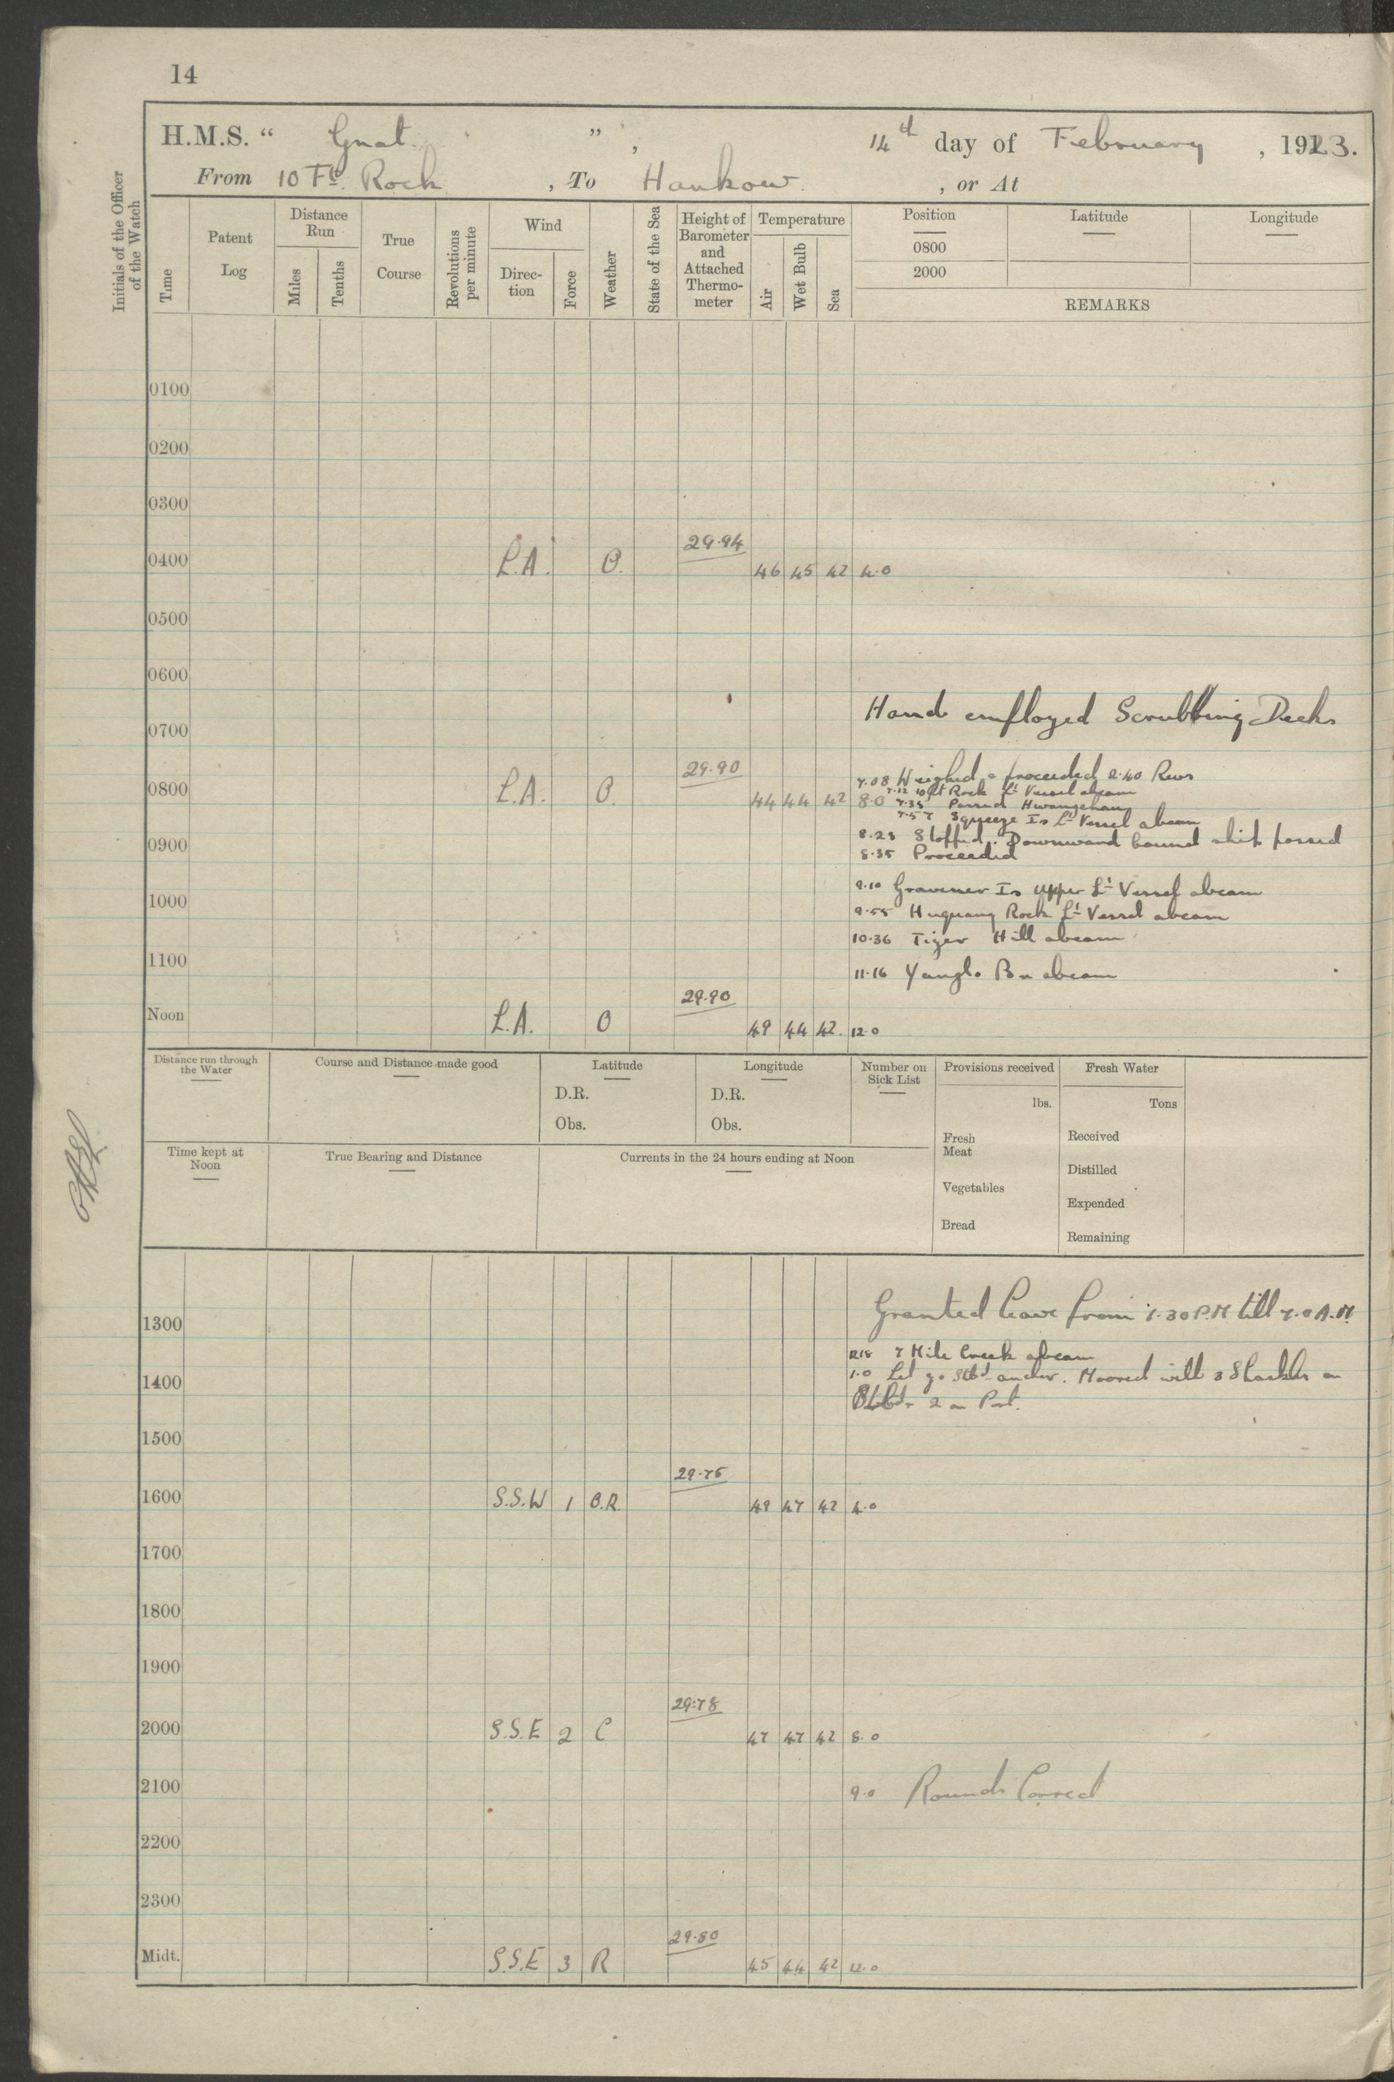 14
H.M.S. “ Gnat ” , 14th day of February , 1923.
From 10 Ft. Rock , To Hankow. , or At
Initials of the Officer of the Watch
Time
Patent Log
Distance Run
Miles
Tenths
True Course
Revolutions per minute
Wind
Direction
Force
Weather
State of the Sea
Height of Barometer and Attached Thermometer
Temperature
Air
Wet Bulb
Sea
Position
Latitude
Longitude
0800
2000
REMARKS
0100
0200
0300
0400 L.A. O. 29.94 46 45 42 4.0
0500
0600
Hands employed Scrubbing Decks
0700
7.08 Weighed & proceeded 240 Revs
7.12 10 ft Rock Lt Vessel abeam
0800 L.A. O. 29.90 44 44 42 8.0
7.35 Passed Hwangchau
7.57 Squeeze Is Lt Vessel abeam
8.23 Stopped. Downward bound ship passed
0900
8.35 Proceeded
9.10 Gravener Is Upper Lt Vessel abeam
1000
9.55 Huquang Rock Lt Vessel abeam
10.36 Tiger Hill abeam
1100
11.16 Yanglo Bn abeam
Noon L.A. O 29.90 49 44 42. 12.0
Distance run through the Water
Course and Distance made good
Latitude
D.R.
Obs.
Longitude
D.R.
Obs.
Number on Sick List
Provisions received
lbs.
Fresh Meat
Vegetables
Bread
Fresh Water
Tons
Received
Distilled
Expended
Remaining
Time kept at Noon
True Bearing and Distance
Currents in the 24 hours ending at Noon
Granted leave from 1.30 P.M till 7.0 A.M.
1300
12.18 7 Mile Creek abeam
1.0 Let go Stbd anchor. Moored with 3 Shackles on
1400
Stbd. 2 on Port.
1500
1600 S.S.W 1 O.R. 29.75 49 47 42 4.0
1700
1800
1900
2000 S.S.E 2 C 29.78 47 47 42 8.0
2100 9.0 Rounds Correct
2200
2300
Midt. S.S.E 3 R 29.80 45 44 42 12.0